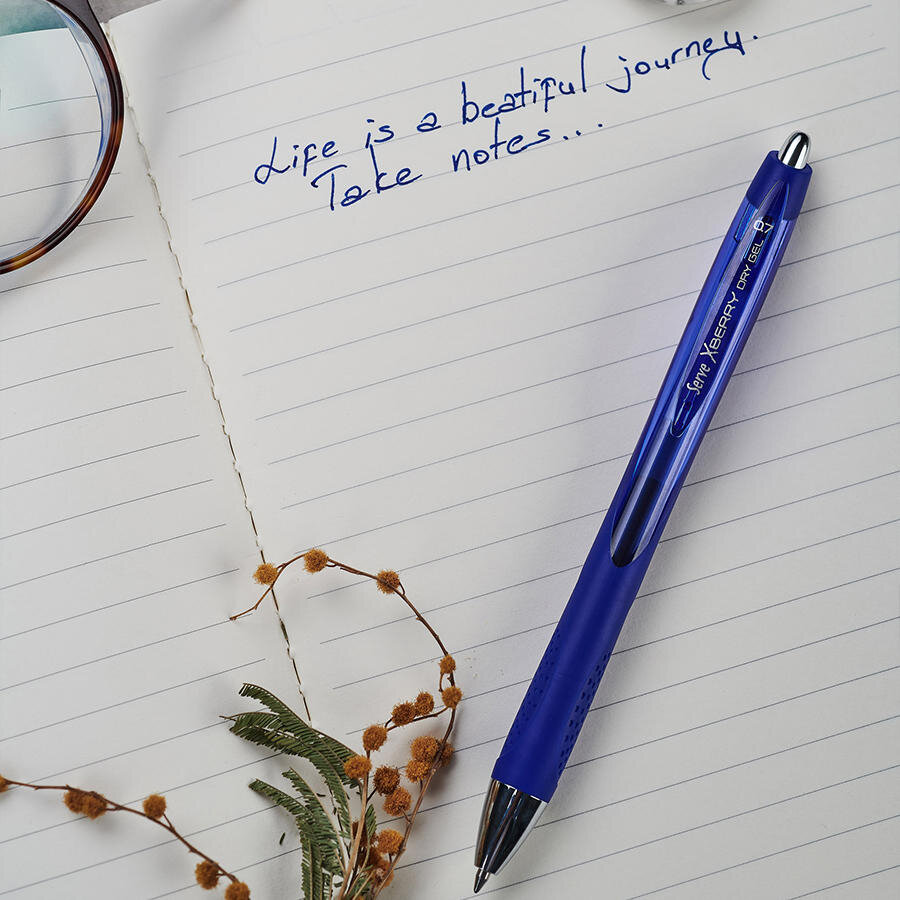 Life is a beatiful journey.
Take notes...
Serve XBERRY DRY GEL 0.7